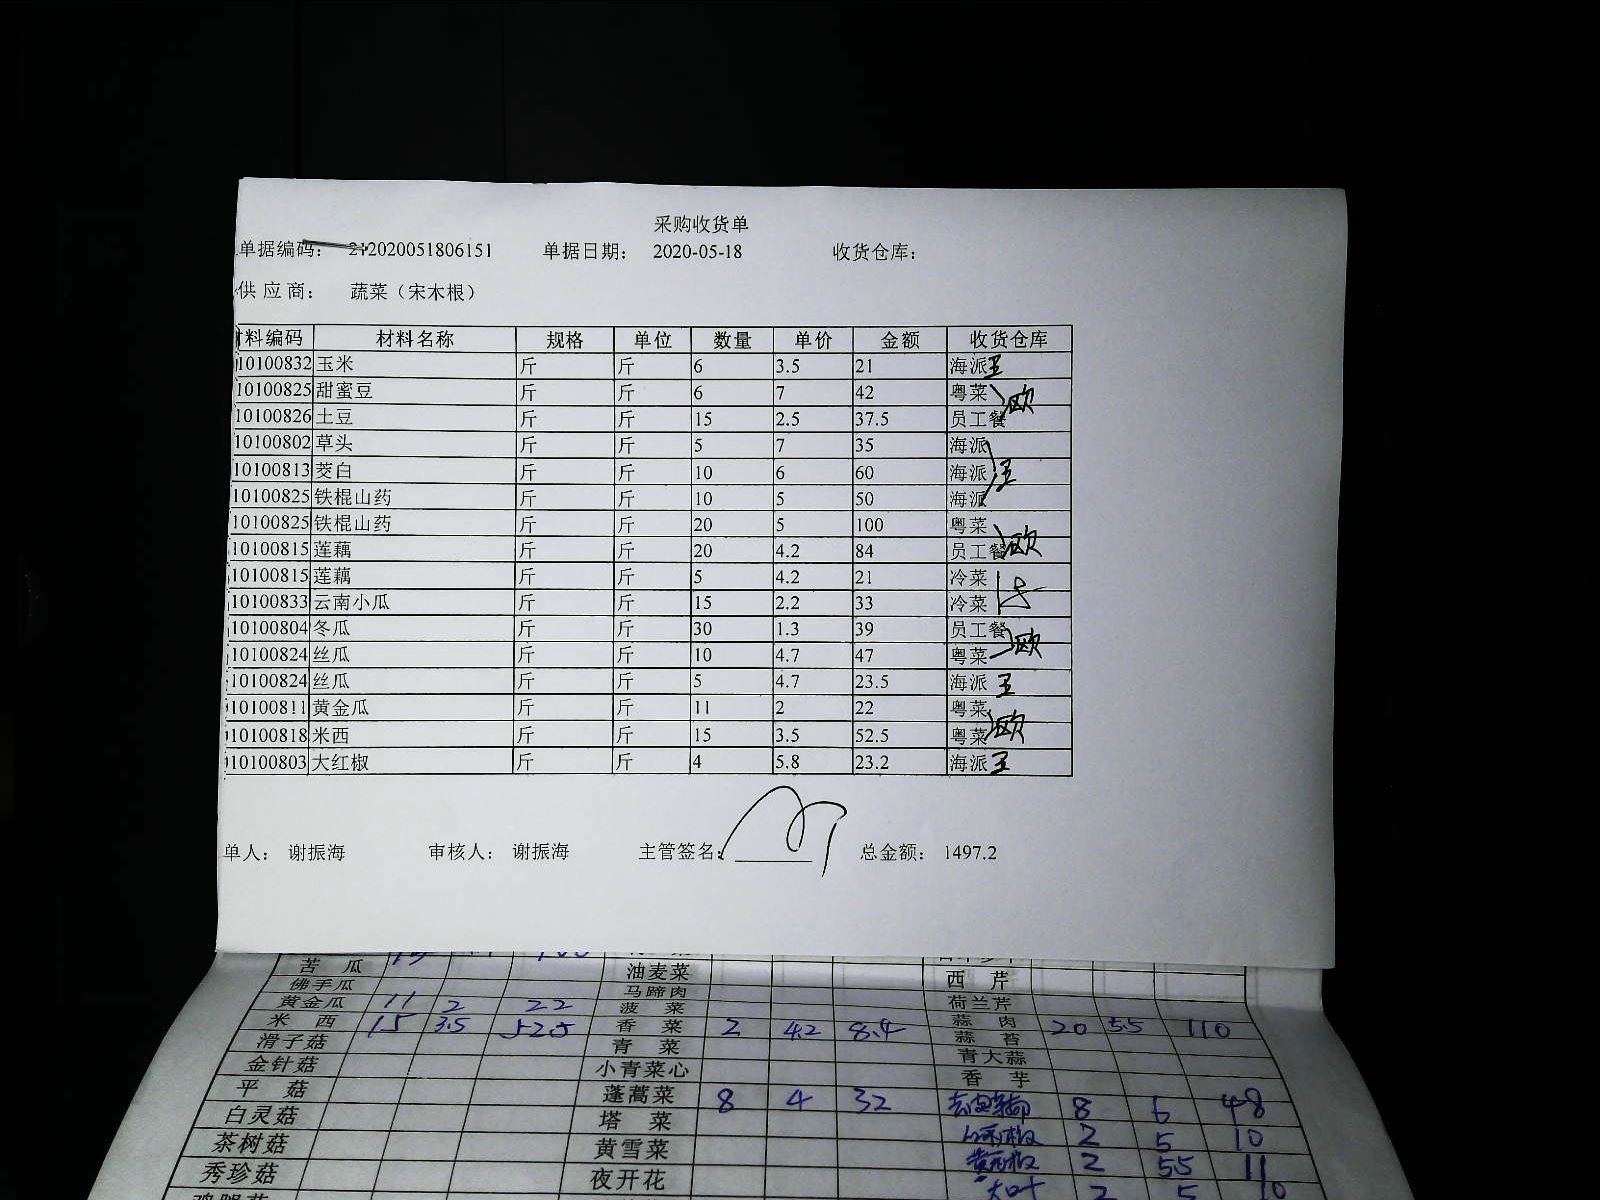 采购收货单
单据编码： 212020051806151 单据日期： 2020-05-18 收货仓库：
供应商： 蔬菜（宋木根）
材料编码 材料名称 规格 单位 数量 单价 金额 收货仓库
10100832 玉米 斤 斤 6 3.5 21 海派 王
10100825 甜蜜豆 斤 斤 6 7 42 粤菜 欧
10100826 土豆 斤 斤 15 2.5 37.5 员工餐
10100802 草头 斤 斤 5 7 35 海派
10100813 茭白 斤 斤 10 6 60 海派 王
10100825 铁棍山药 斤 斤 10 5 50 海派
10100825 铁棍山药 斤 斤 20 5 100 粤菜
10100815 莲藕 斤 斤 20 4.2 84 员工餐 欧
10100815 莲藕 斤 斤 5 4.2 21 冷菜
10100833 云南小瓜 斤 斤 15 2.2 33 冷菜
10100804 冬瓜 斤 斤 30 1.3 39 员工餐 欧
10100824 丝瓜 斤 斤 10 4.7 47 粤菜
10100824 丝瓜 斤 斤 5 4.7 23.5 海派 王
10100811 黄金瓜 斤 斤 11 2 22 粤菜 欧
10100818 米西 斤 斤 15 3.5 52.5 粤菜
10100803 大红椒 斤 斤 4 5.8 23.2 海派 王
单人： 谢振海 审核人： 谢振海 主管签名： 总金额： 1497.2
苦瓜 15 油麦菜 西芹
佛手瓜 马蹄肉 荷兰芹
黄金瓜 11 2 22 菠菜 蒜肉 20 5.5 110
米西 15 3.5 52.5 香菜 2 4.2 8.4 蒜苔
滑子菇 青菜 青大蒜
金针菇 小青菜心 香芋
平菇 蓬蒿菜 8 4 32 8 6 48
白灵菇 塔菜 2 5 10
茶树菇 黄雪菜 2 5.5 11
秀珍菇 夜开花 大叶 2 5 10